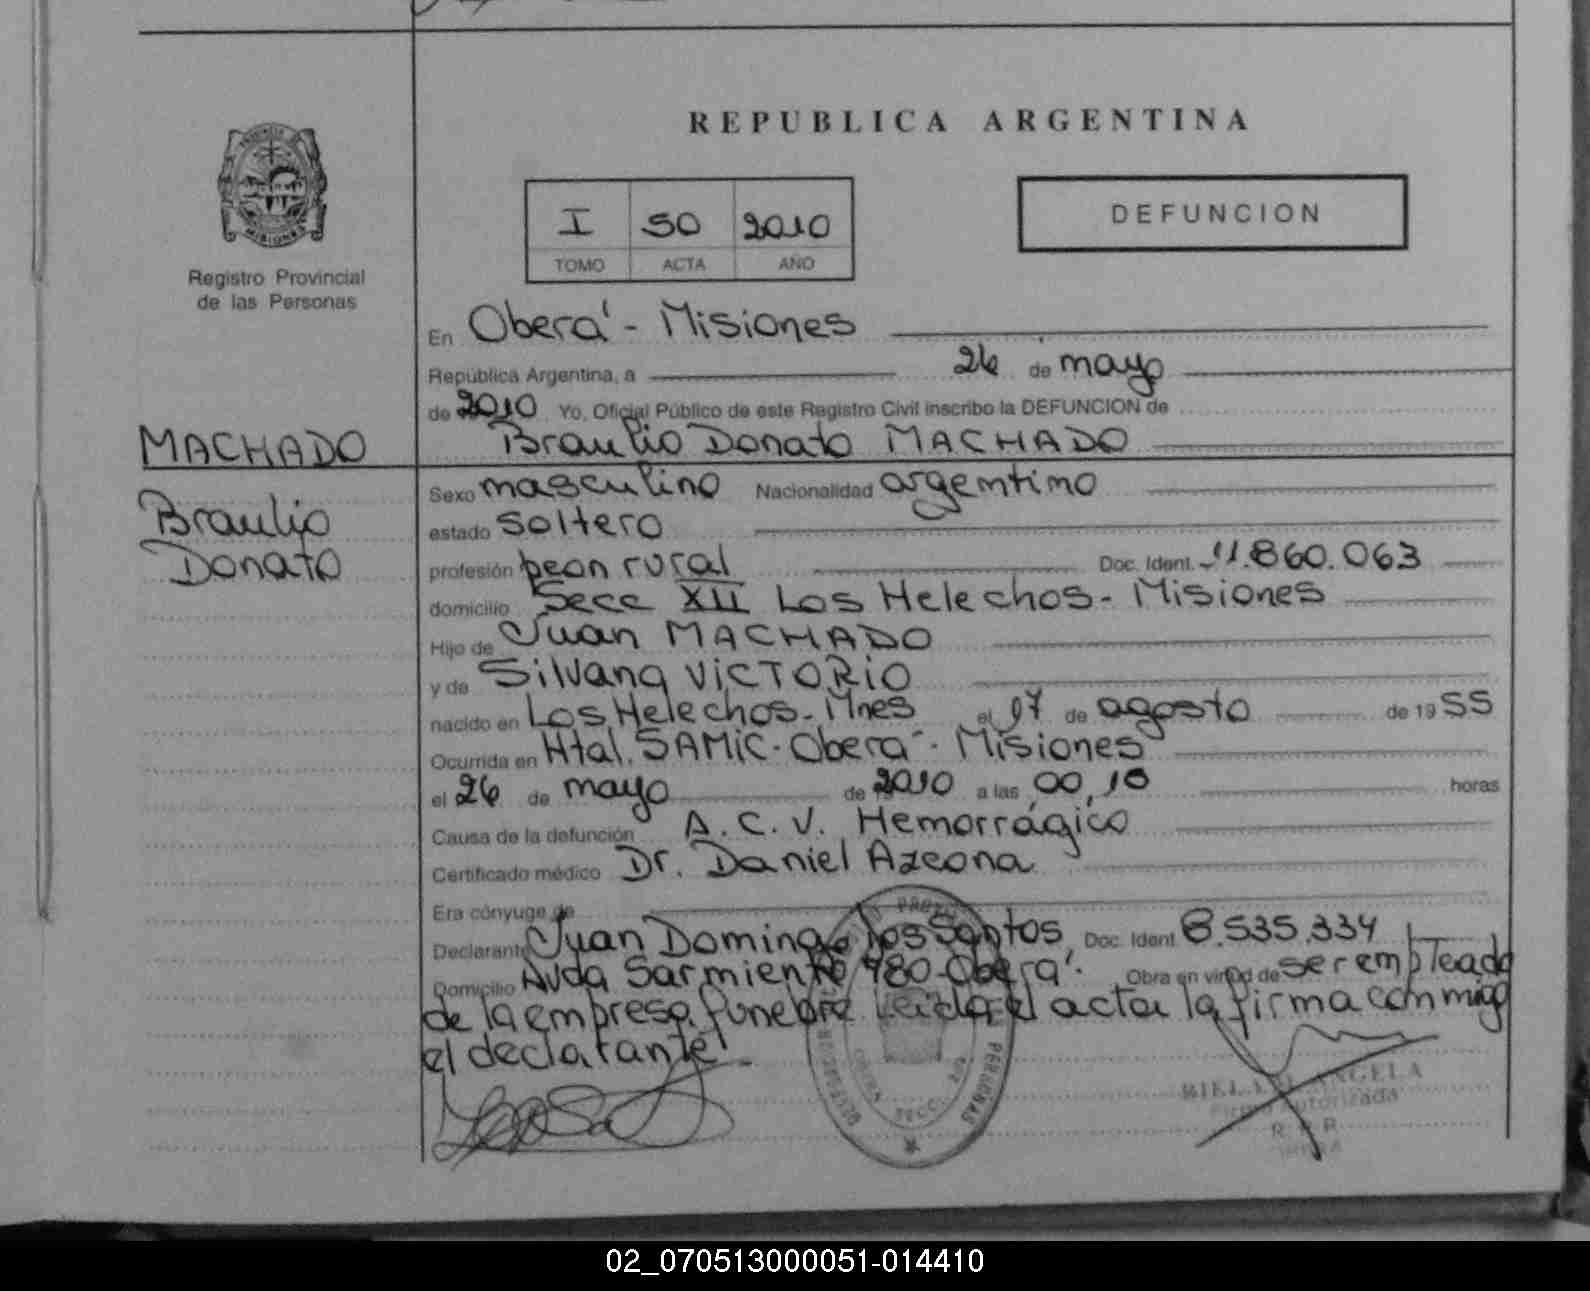 REPUBLICA ARGENTINA
PROVINCIA
MISIONES
Registro Provincial
de las Personas
I 50 2010
TOMO ACTA AÑO
DEFUNCION
En Oberá - Misiones
República Argentina, a 26 de mayo
de 2010 Yo, Oficial Público de este Registro Civil inscribo la DEFUNCION de
MACHADO
Braulio Donato MACHADO
Braulio
Donato
Sexo masculino Nacionalidad argentino
estado soltero
profesión peon rural Doc. Ident. 11.860.063
domicilio Secc XII Los Helechos - Misiones
Hijo de Juan MACHADO
y de Silvana VICTORIO
nacido en Los Helechos - Mnes el 07 de agosto de 1955
Ocurrida en Htal. SAMIC - Oberá - Misiones
el 26 de mayo de 2010 a las 00,10 horas
Causa de la defunción A.C.V. Hemorrágico
Certificado médico Dr. Daniel Azcona
Era cónyuge de
Declarante Juan Domingo Dos Santos Doc. Ident. 8.535.334
Domicilio Avda Sarmiento 980 - Oberá. Obra en virtud de ser empleado
de la empresa funebre Leida el acta la firma conmigo
el declarante -
ANGELA
Firma Autorizada
R. P. P.
SECC.
02_070513000051-014410